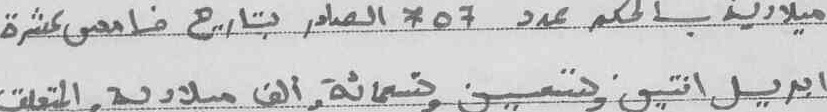 ميلادية بالحكم عدد 707 الصادر بتاريخ خامس عشرة
ابريل اثنين وتسعين وتسعمائة وألف ميلادية، المتعلق